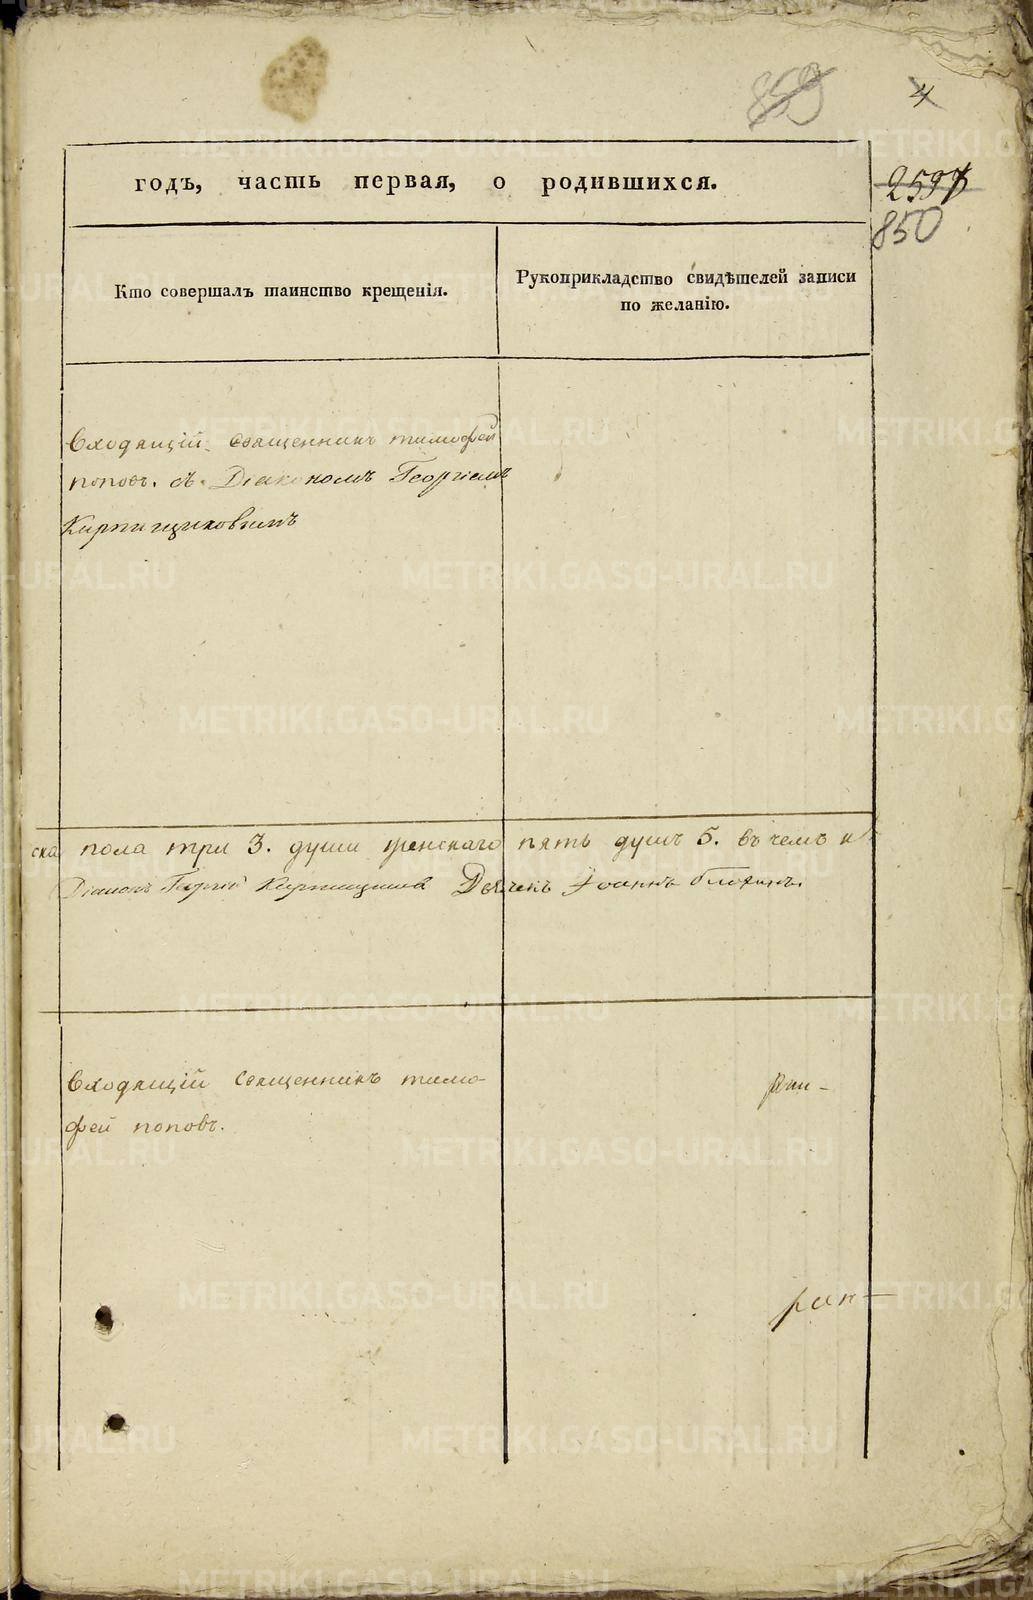 850
4
годъ, часть первая, о родившихся.
2597
850
Кто совершалъ таинство крещенія.
Рукоприкладство свидѣтелей записи
по желанію.
Входящій священникъ тимофей
поповъ. съ Діакономъ Георгіемъ
Кирпищиковымъ
ска пола три 3. души женскаго пять душъ 5. въ чемъ и
Діаконъ Георгій Кирпищиковъ Дьячекъ Іоаннъ
Входящій священникъ тимо-
фей поповъ.
METRIKI.GASO-URAL.RU